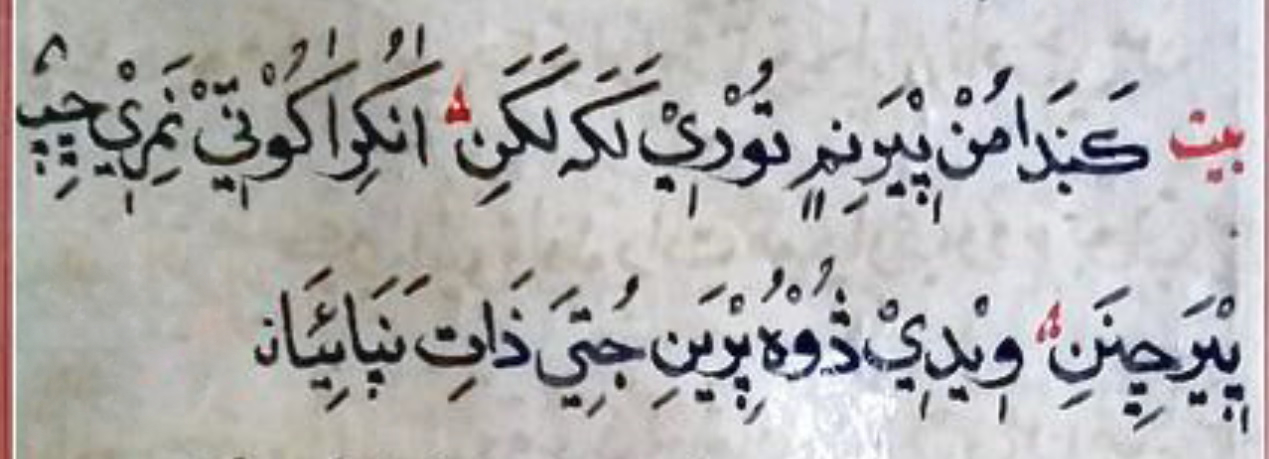 بيت كَنَدَا مُنْ پيْرَنِمِ تُوْرِيْ لَكَہ لَكَنِ اَنْكِرُ اَكُوْتيْ نَمِرِيْ چِپُ
پيْرَ چِنَنِ وِيْدِيْ ڎُوْهُ پِرْيَنِ جُتِيَ ذَاتِ نَپَائِيَان